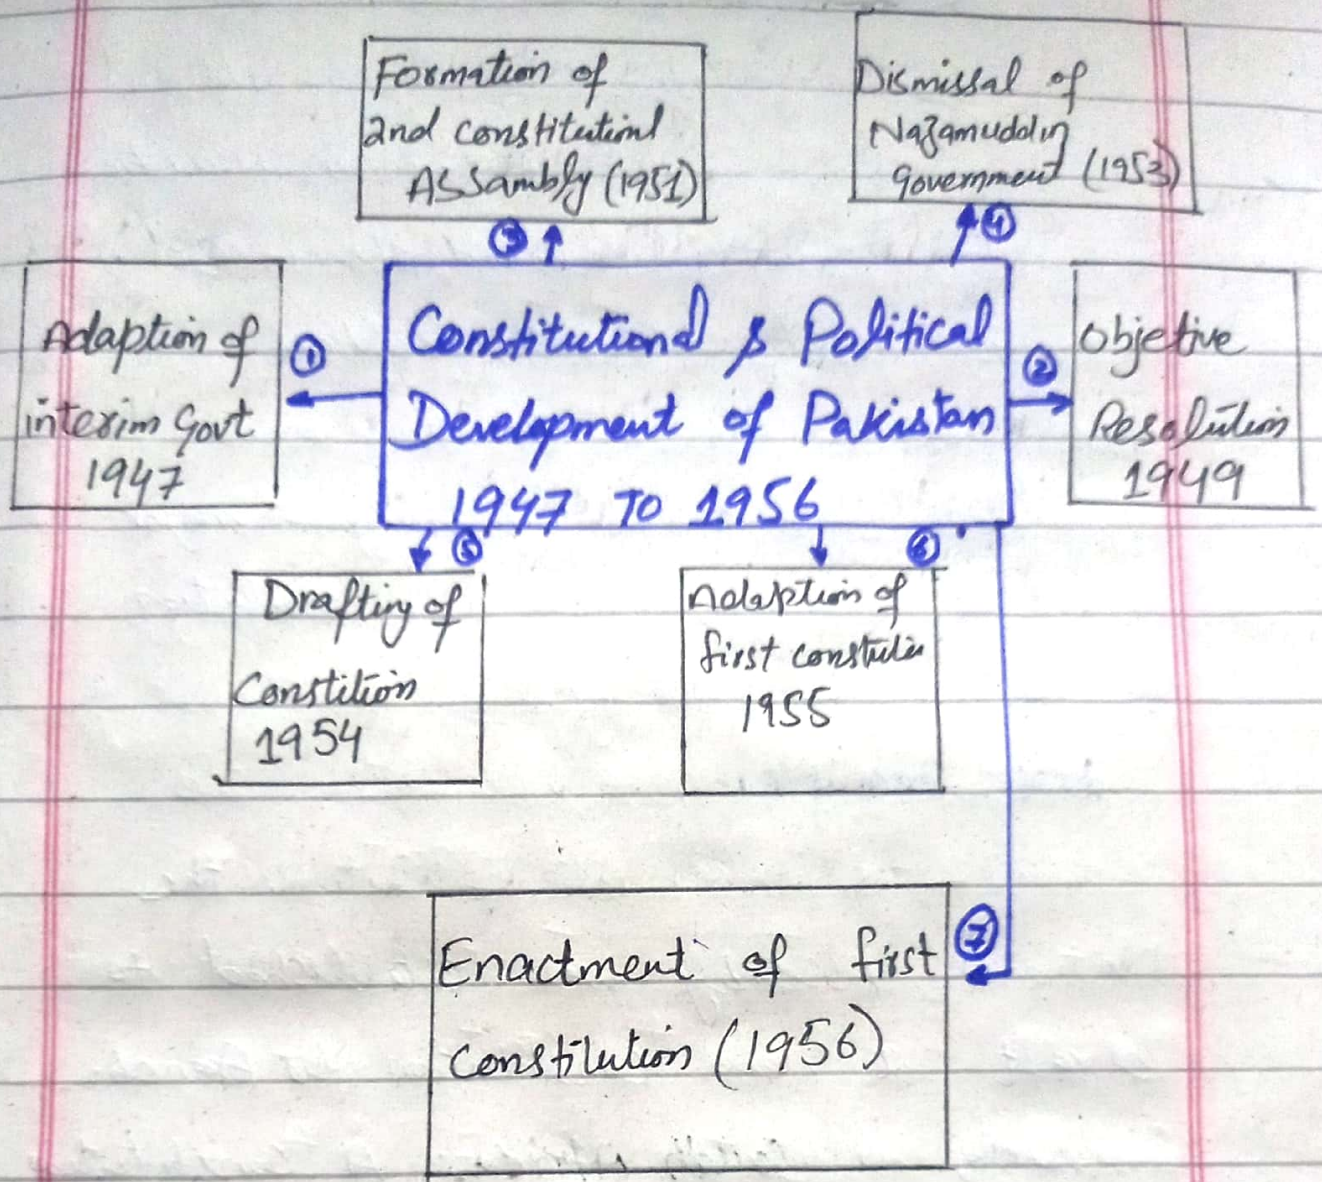 Formation of
2nd constitutional
Assambly (1951)
Dismissal of
Nazamuddin
Government (1953)
3
4
Adaption of
interim Govt
1947
1
Constitutional & Political
Development of Pakistan
1947 TO 1956
2
Objetive
Resolution
1949
5
6
Drafting of
Constition
1954
Adaption of
first
1955
7
Enactment of first
Constitution (1956)